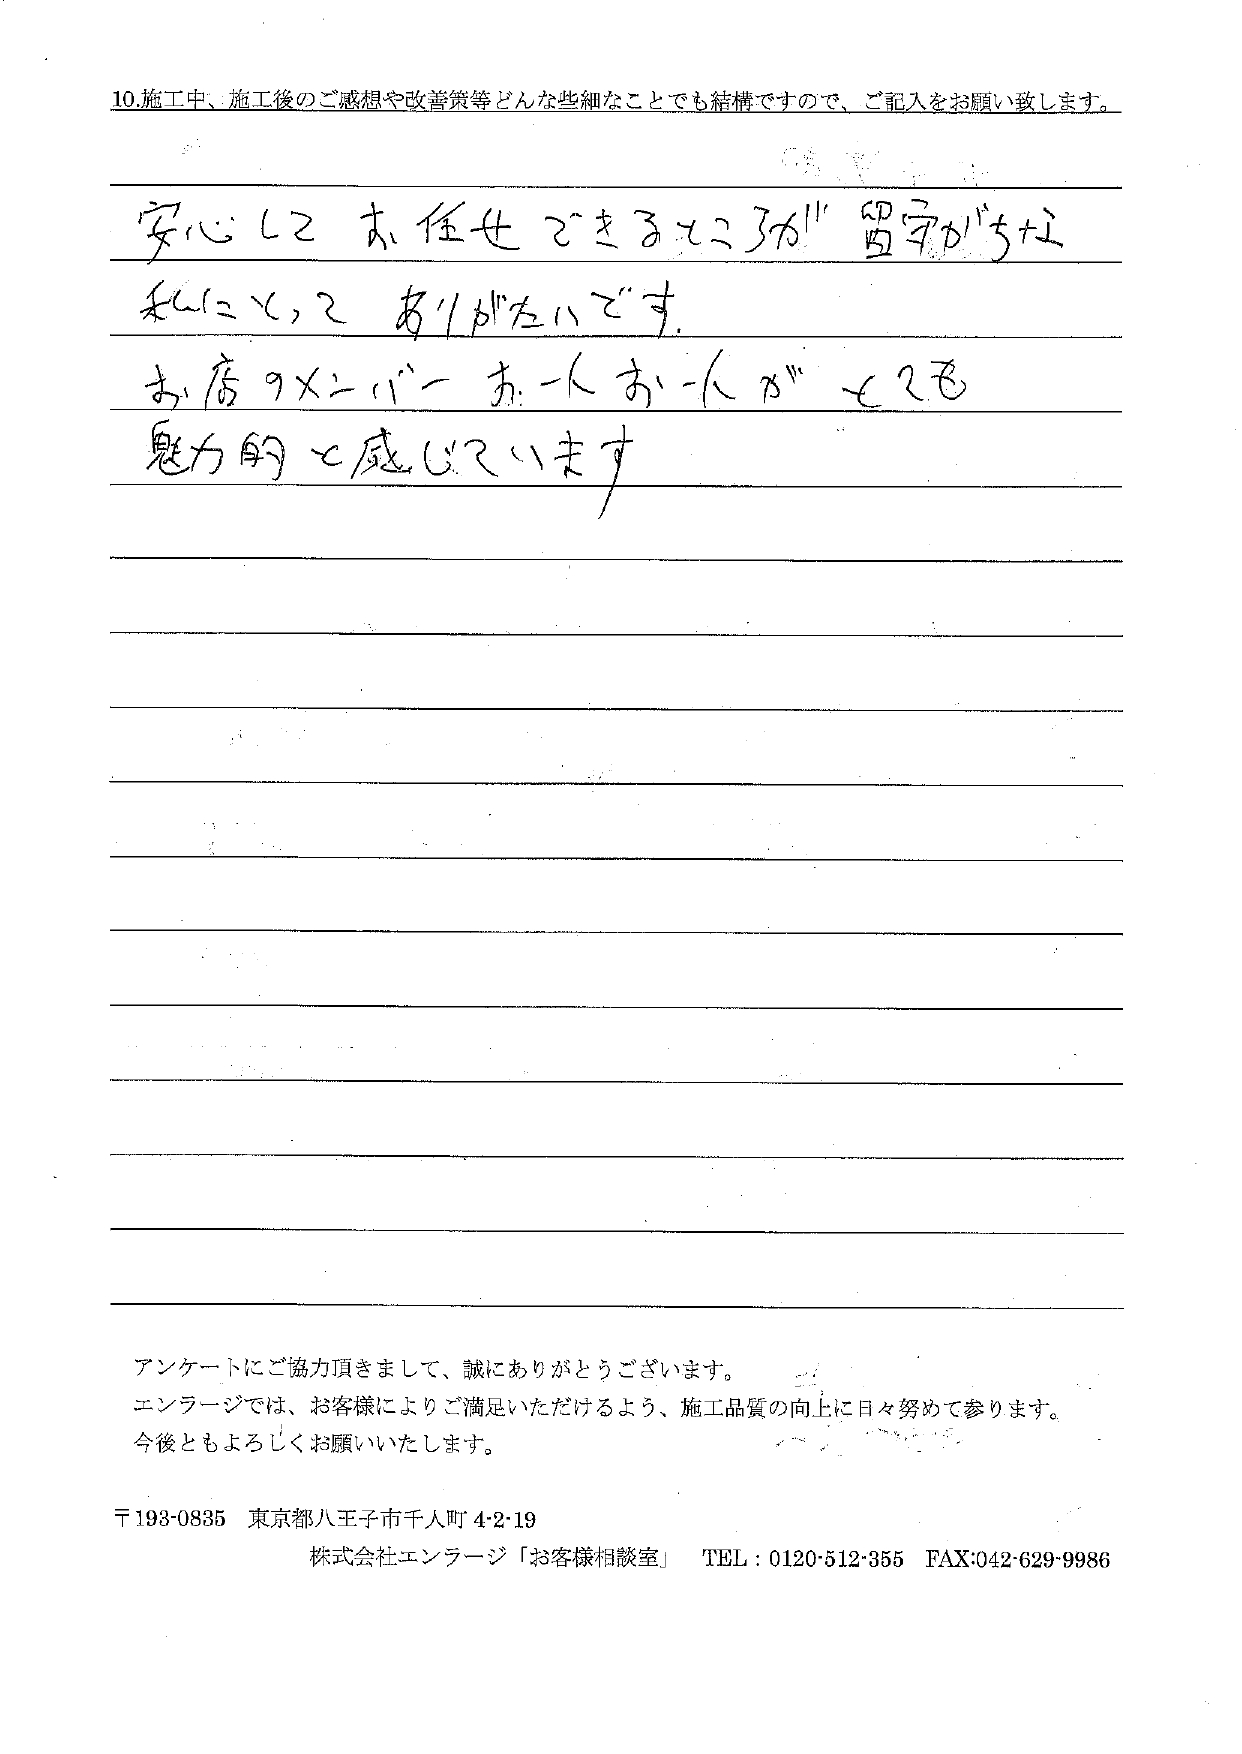 10.施工中、施工後のご感想や改善策等どんな些細なことでも結構ですので、ご記入をお願い致します。
安心して お任せできるところが 留守がちな
私にとって ありがたいです.
お店のメンバー お一人お一人が とても
魅力的と感じています
アンケートにご協力頂きまして、誠にありがとうございます。
エンラージでは、お客様によりご満足いただけるよう、施工品質の向上に日々努めて参ります。
今後ともよろしくお願いいたします。
〒193-0835 東京都八王子市千人町 4-2-19
株式会社エンラージ「お客様相談室」 TEL:0120-512-355 FAX:042-629-9986